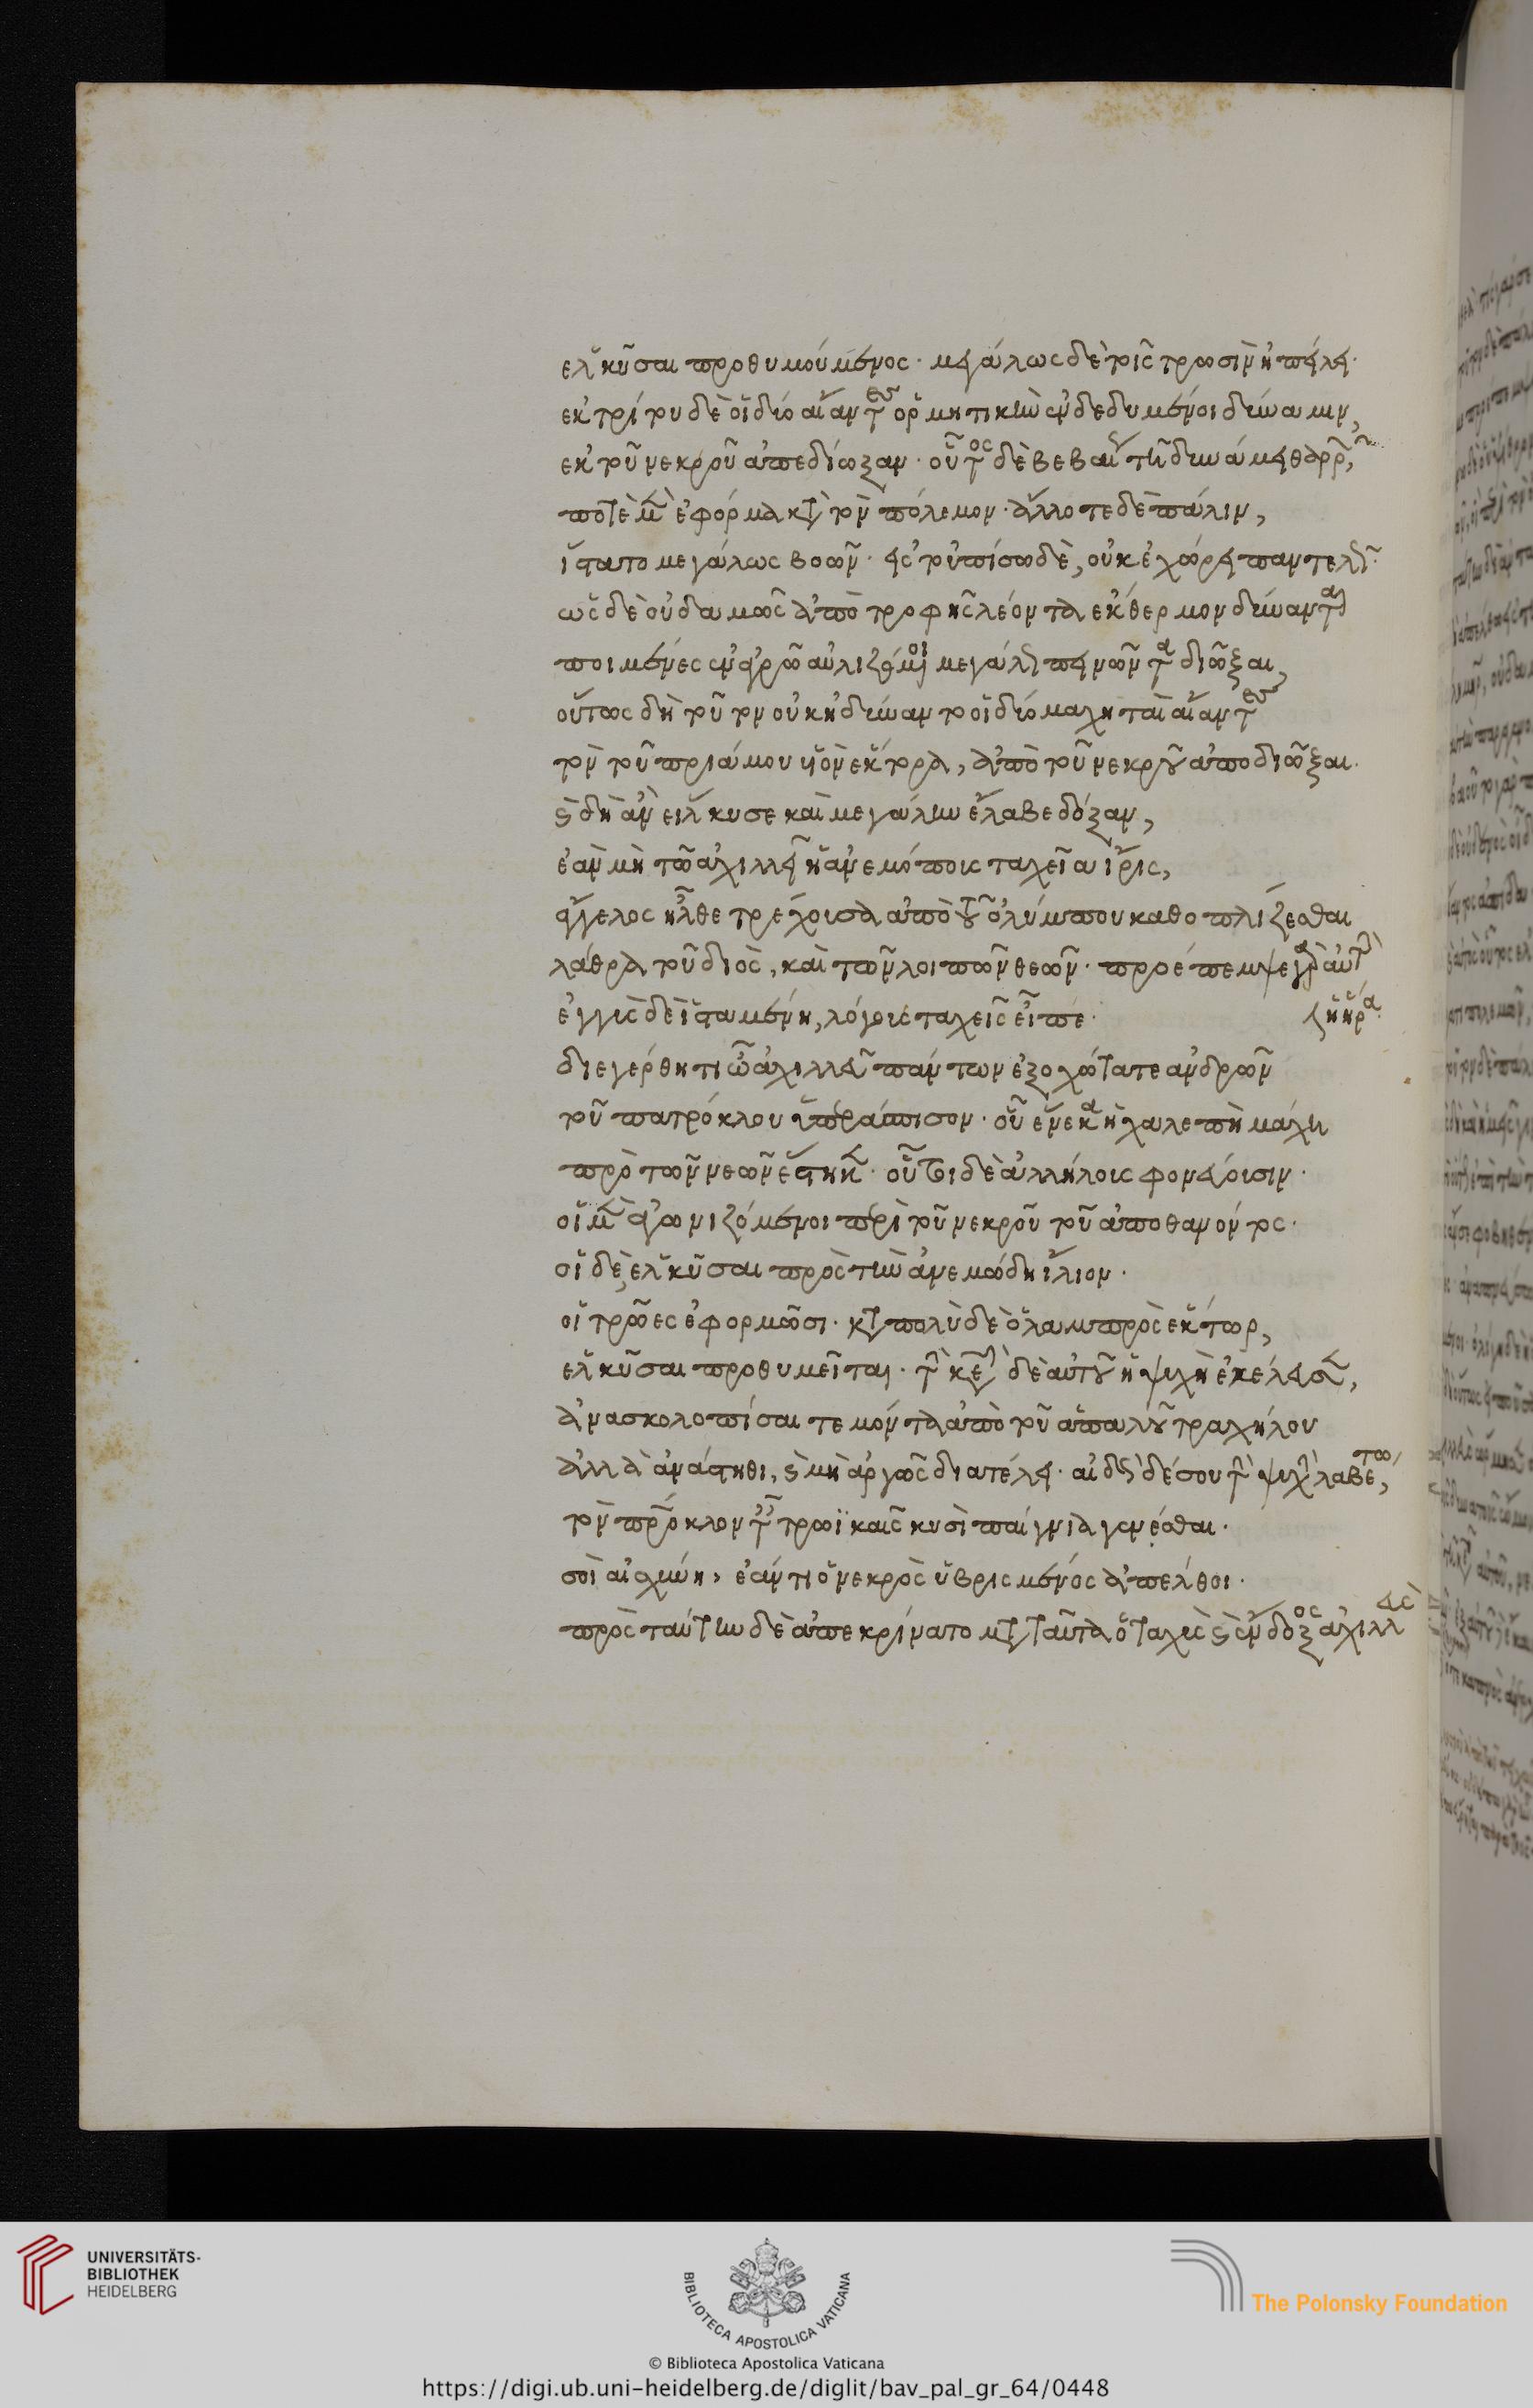 ἑλκῦσαι προθυμούμενος· μεγάλως δὲ τοῖς τρωσὶν ἠπείλει·
ἐκ τρίτου δὲ οἱ δύο αἴαντες ὁρμητικὴν ἐνδεδυμένοι δύναμιν,
ἐκ τοῦ νεκροῦ ἀπεδίωξαν· οὗτος δὲ βεβαίως τῇ δυνάμει θαρρῶν,
ποτὲ μὲν ἐφόρμα κατὰ τὸν πόλεμον· ἄλλοτε δὲ πάλιν,
ἵστατο μεγάλως βοῶν· εἰς τοὐπίσω δὲ, οὐκ ἐχώρει παντελῶς·
ὡς δὲ οὐδαμῶς ἀπὸ τροφῆς λέοντα ἔκθερμον δύνανται
ποιμένες ἐν ἀγρῶ αὐλιζόμενοι μεγάλως πεινῶντα διῶξαι,
οὕτως δὴ τοῦτον οὐκ ἠδύναντο οἱ δύο μαχηταὶ αἴαντες
τὸν τοῦ πριάμου υἱὸν ἕκτορα, ἀπὸ τοῦ νεκροῦ ἀποδιῶξαι·
καὶ δὴ ἂν εἵλκυσε καὶ μεγάλην ἔλαβε δόξαν,
ἐὰν μὴ τῶ ἀχιλλεῖ ἡ ἀνεμόποις ταχεῖα ἶρις,
ἄγγελος ἦλθε τρέχουσα ἀπὸ τοῦ ὀλύμπου καθοπλίζεσθαι
λάθρα τοῦ διὸς, καὶ τῶν λοιπῶν θεῶν· προέπεμψε γὰρ αὐτὴν
ἡ ἥρα·
ἐγγὺς δὲ ἱσταμένη, λόγους ταχεῖς εἶπε·
διεγέρθητι ὦ ἀχιλλεῦ πάντων ἐξοχώτατε ἀνδρῶν
τοῦ πατρόκλου ὑπεράσπισον· οὗ ἕνεκα ἡ χαλεπὴ μάχη
πρὸ τῶν νεῶν ἕστηκεν· οὗτοι δὲ ἀλλήλους φονεύουσιν·
οἱ μὲν ἀγωνιζόμενοι περὶ τοῦ νεκροῦ τοῦ ἀποθανόντος·
οἱ δὲ, ἑλκῦσαι πρὸς τὴν ἀνεμώδη ἴλιον·
οἱ τρῶες ἐφορμῶσι· κατὰ πολὺ δὲ ὁ λαμπρὸς ἕκτωρ,
ἑλκῦσαι προθυμεῖται· τὴν κεφαλὴν δὲ αὐτοῦ ἡ ψυχὴ ἐκέλευσεν,
ἀνασκολοπίσαι τεμόντα ἀπὸ τοῦ ἁπαλοῦ τραχήλου
ἀλλὰ ἀνάστηθι, καὶ μὴ ἀργῶς διατέλει· αἰδὼς δὲ σου τὴν ψυχὴν λαβέτω,
τὸν πάτροκλον ταῖς τρωϊκαῖς κυσὶ παίγνια γενέσθαι·
σοὶ αἰσχύνη, ἐάν τι ὁ νεκρὸς ὑβρισμένος ἀπέλθοι·
πρὸς ταύτην δὲ ἀπεκρίνατο μετὰ ταῦτα ὁ ταχὺς καὶ ἔνδοξος ἀχιλλεὺς
UNIVERSITÄTS-
BIBLIOTHEK
HEIDELBERG
BIBLIOTECA APOSTOLICA VATICANA
The Polonsky Foundation
© Biblioteca Apostolica Vaticana
https://digi.ub.uni-heidelberg.de/diglit/bav_pal_gr_64/0448